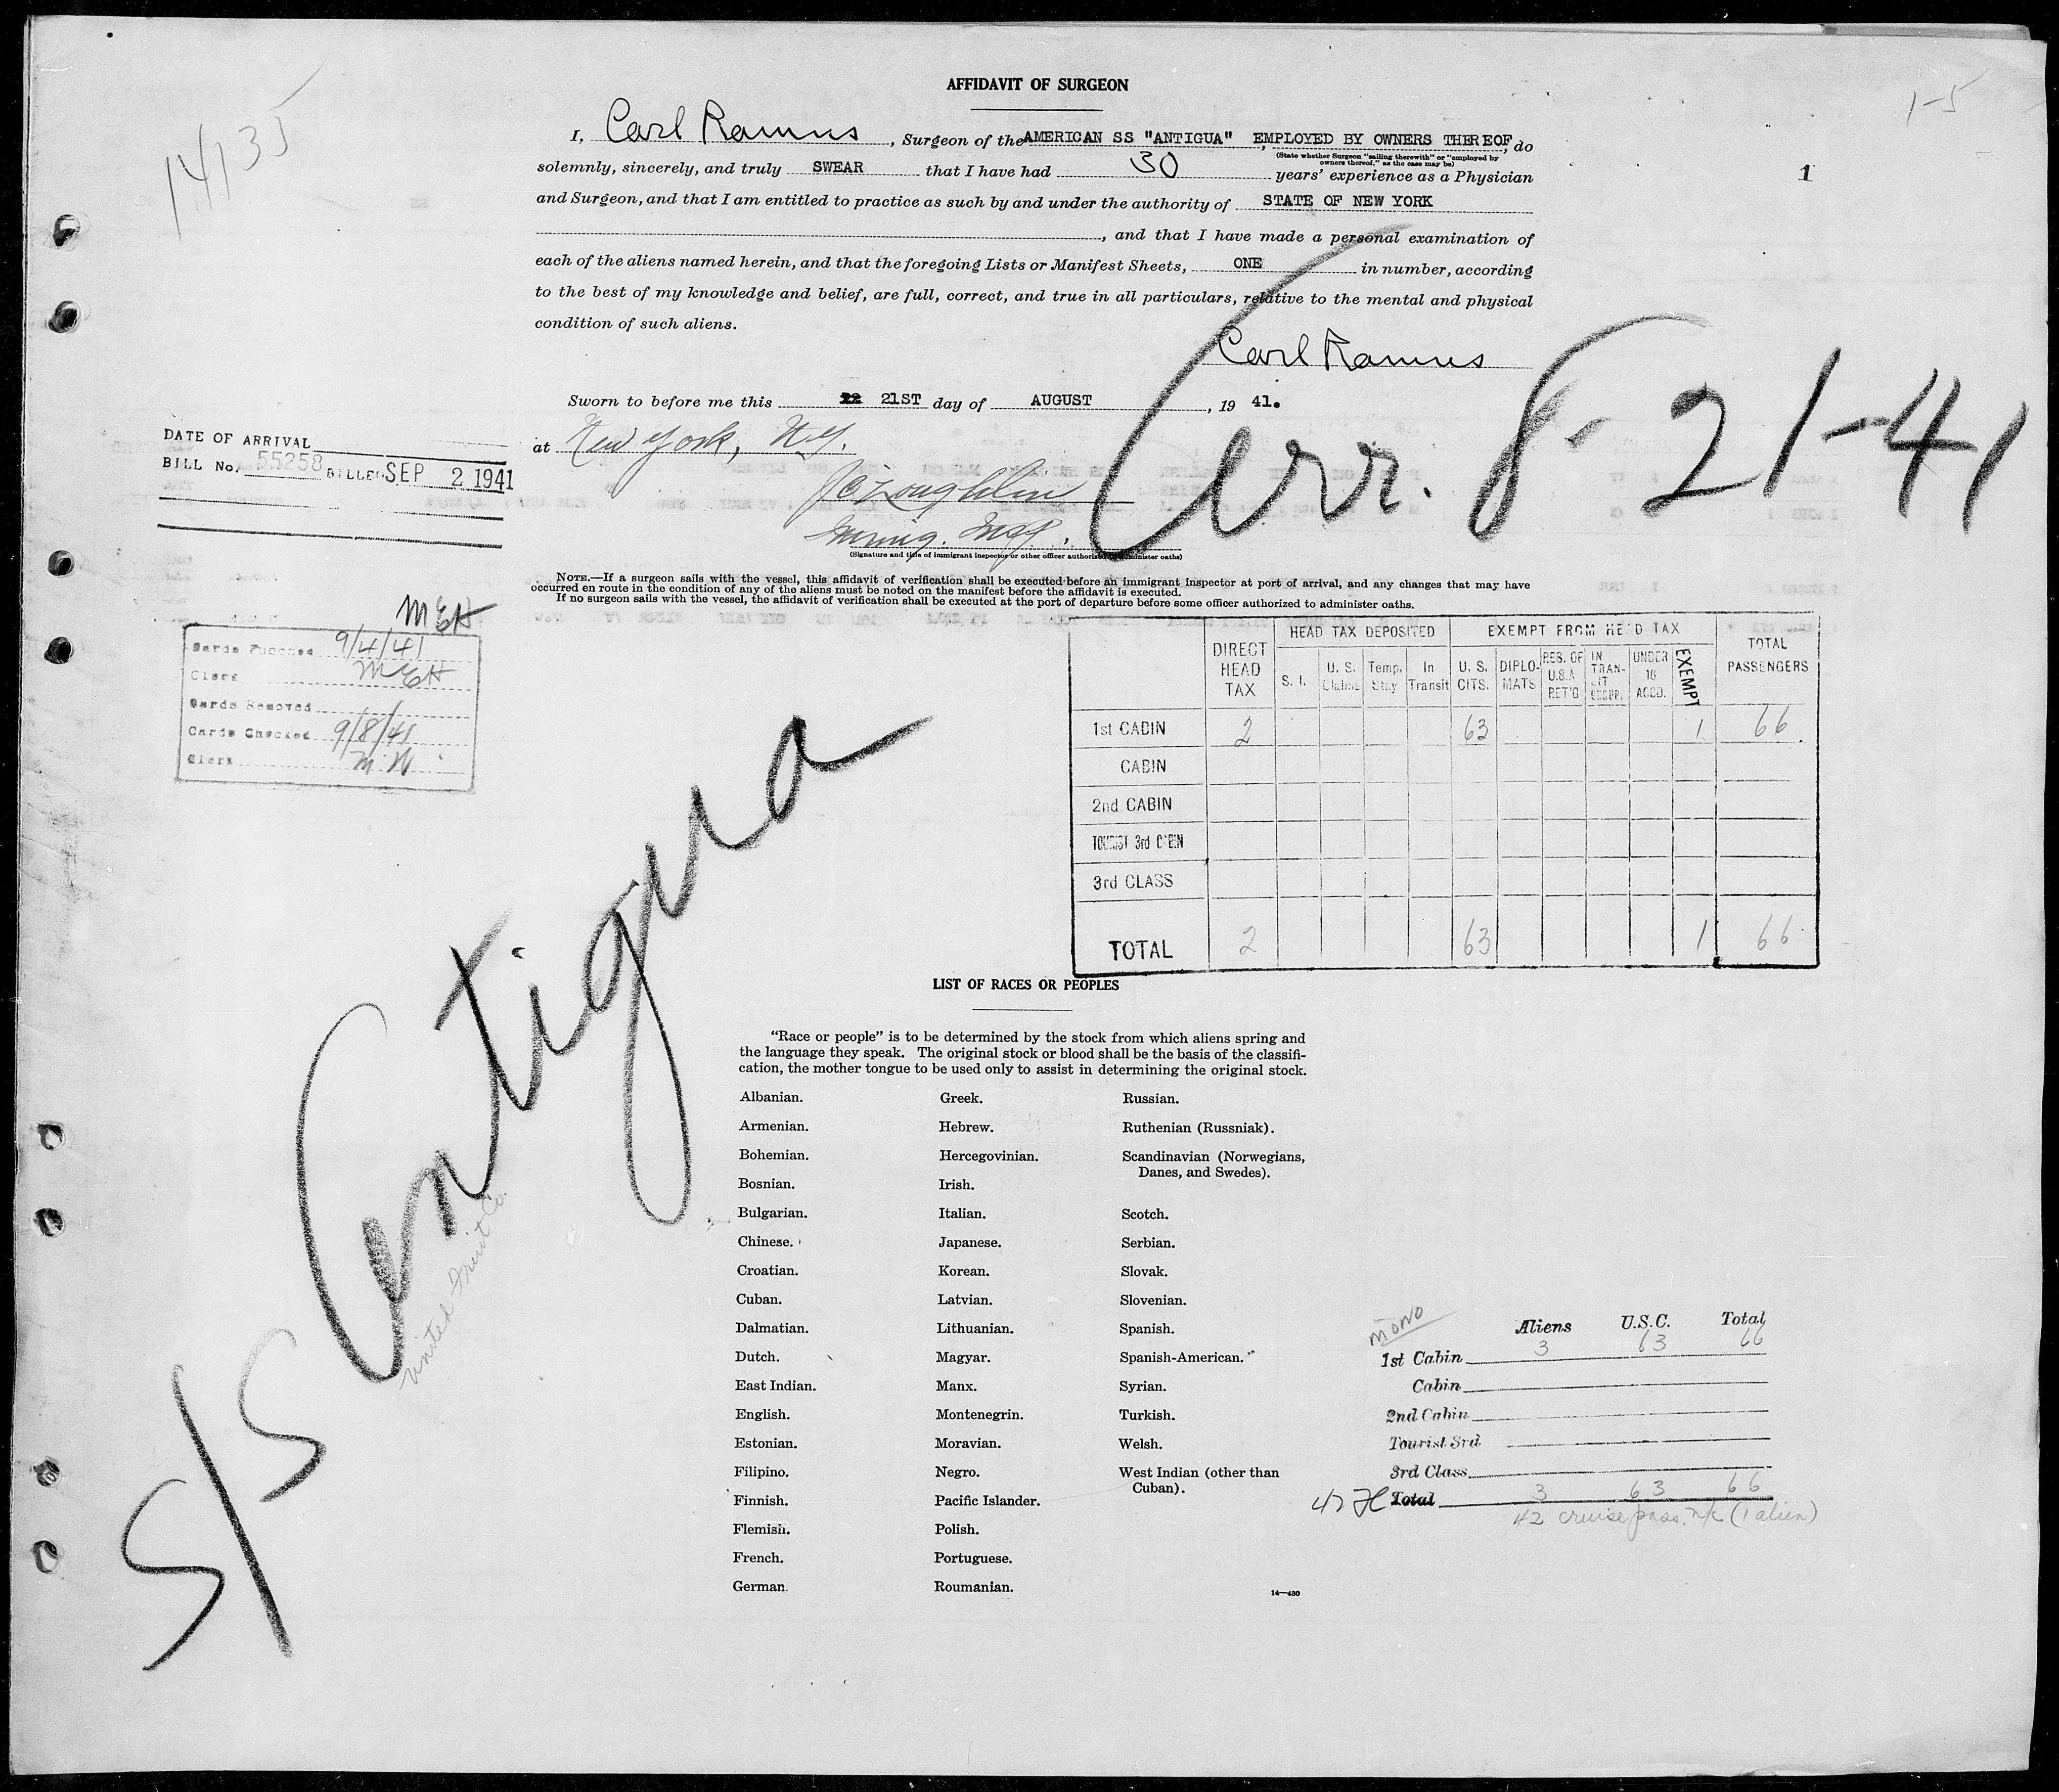 AFFIDAVIT OF SURGEON
14135
1-5
I, Carl Ramus, Surgeon of the AMERICAN SS "ANTIGUA", EMPLOYED BY OWNERS THEREOF, do
(State whether Surgeon "sailing therewith" or "employed by
owners thereof," as the case may be)
solemnly, sincerely, and truly SWEAR that I have had 30 years' experience as a Physician
1
and Surgeon, and that I am entitled to practice as such by and under the authority of STATE OF NEW YORK
, and that I have made a personal examination of
each of the aliens named herein, and that the foregoing Lists or Manifest Sheets, ONE in number, according
to the best of my knowledge and belief, are full, correct, and true in all particulars, relative to the mental and physical
condition of such aliens.
Carl Ramus
Sworn to before me this 22 21ST day of AUGUST, 19 41.
at New York, N.Y.
Arr. 8-21-41
DATE OF ARRIVAL
BILL No. 55258 BILLED SEP 2 1941
Immig. Insp.
(Signature and title of immigrant inspector or other officer authorized to administer oaths)
NOTE.—If a surgeon sails with the vessel, this affidavit of verification shall be executed before an immigrant inspector at port of arrival, and any changes that may have
occurred en route in the condition of any of the aliens must be noted on the manifest before the affidavit is executed.
If no surgeon sails with the vessel, the affidavit of verification shall be executed at the port of departure before some officer authorized to administer oaths.
MEH
Cards Punched 9/4/41
Clerk MEH
Cards Removed
Cards Checked 9/8/41
Clerk
DIRECT HEAD TAX
HEAD TAX DEPOSITED
EXEMPT FROM HEAD TAX
TOTAL PASSENGERS
S. I.
U. S. Claims
Temp. Stay
In Transit
U. S. CITS.
DIPLO-MATS
RES. OF U.S.A. RET'G
IN TRAN-SIT
UNDER 16 ACCD.
EXEMPT
1st CABIN 2 63 1 66
CABIN
2nd CABIN
TOURIST 3rd CABIN
3rd CLASS
TOTAL 2 63 1 66
S/S Antigua
United Fruit Co.
LIST OF RACES OR PEOPLES
"Race or people" is to be determined by the stock from which aliens spring and
the language they speak. The original stock or blood shall be the basis of the classifi-
cation, the mother tongue to be used only to assist in determining the original stock.
Albanian.
Armenian.
Bohemian.
Bosnian.
Bulgarian.
Chinese.
Croatian.
Cuban.
Dalmatian.
Dutch.
East Indian.
English.
Estonian.
Filipino.
Finnish.
Flemish.
French.
German.
Greek.
Hebrew.
Hercegovinian.
Irish.
Italian.
Japanese.
Korean.
Latvian.
Lithuanian.
Magyar.
Manx.
Montenegrin.
Moravian.
Negro.
Pacific Islander.
Polish.
Portuguese.
Roumanian.
Russian.
Ruthenian (Russniak).
Scandinavian (Norwegians,
Danes, and Swedes).
Scotch.
Serbian.
Slovak.
Slovenian.
Spanish.
Spanish-American.
Syrian.
Turkish.
Welsh.
West Indian (other than
Cuban).
14—430
mono
Aliens U.S.C. Total
1st Cabin 3 63 66
Cabin
2nd Cabin
Tourist 3rd
3rd Class
Total 3 63 66
42 cruise pass. (1 alien)